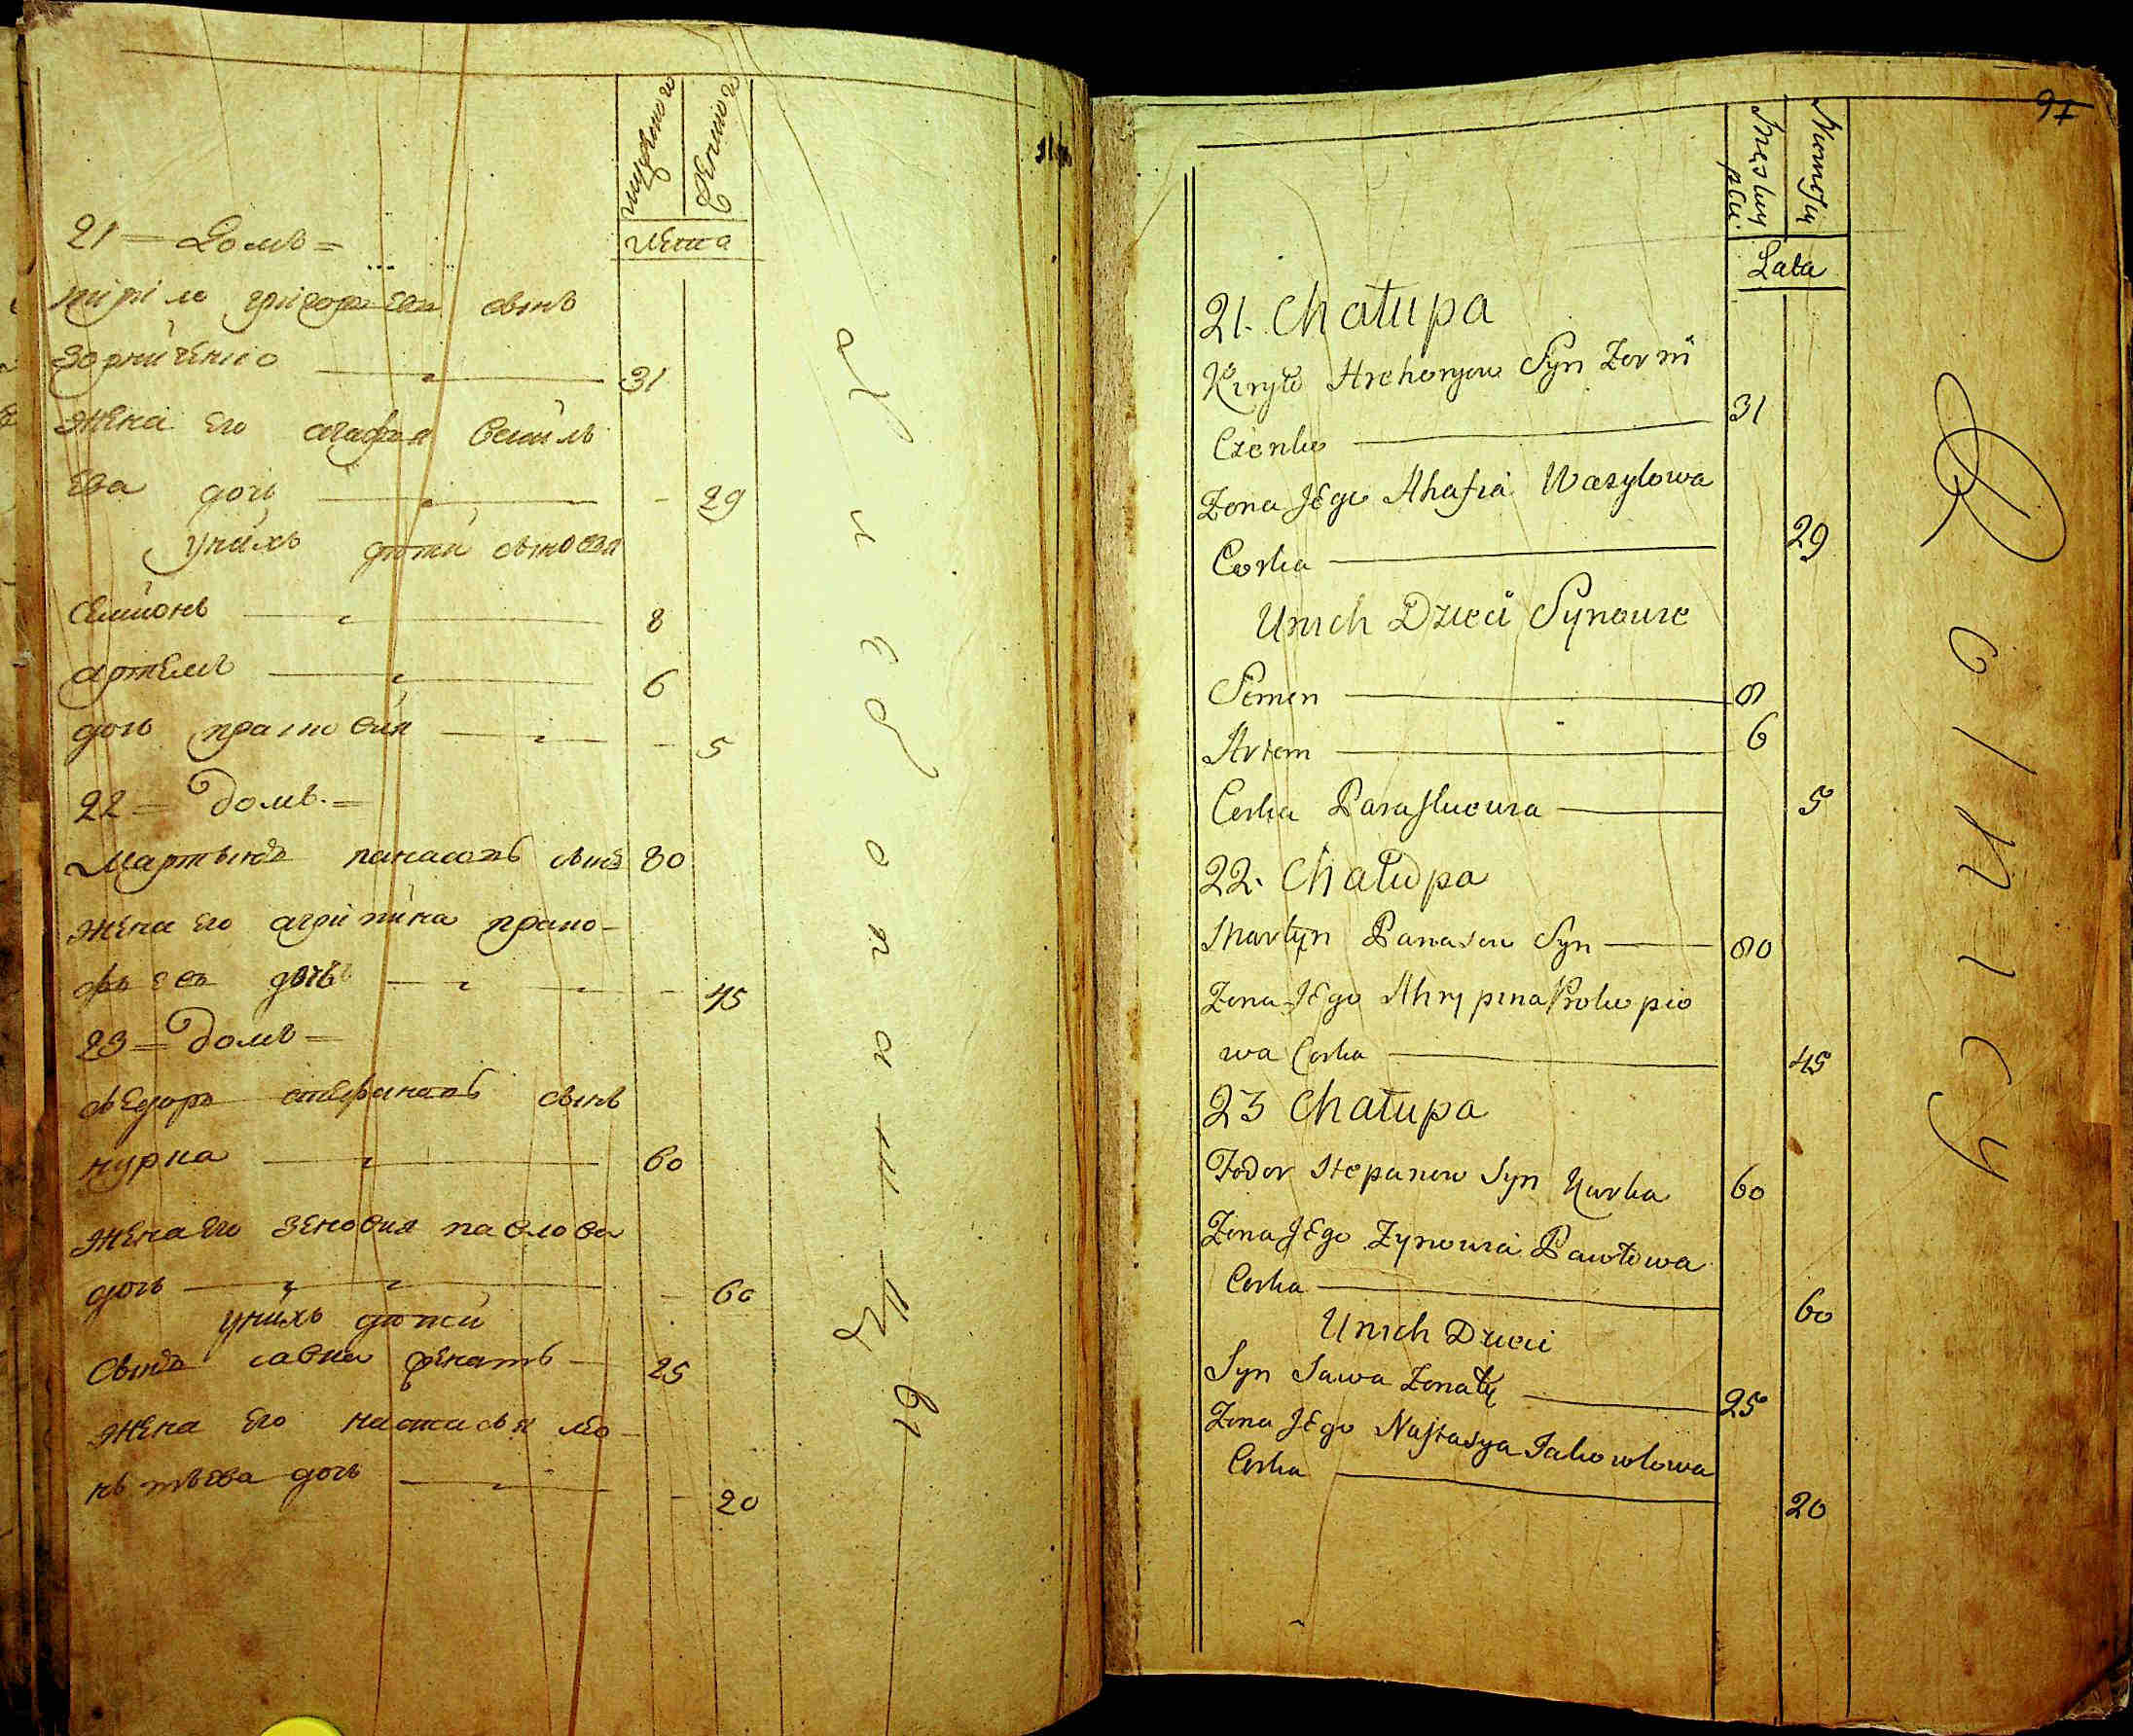 мужеского
женского
лета
21 = Домъ =
киріло григорьевъ сынъ
Зорніченко 31
жена его агафия Васіль
ева дочь 29
у нихъ дѣти сынова
Семионъ 8
артемъ 6
дочь прасковия 5
22 = Домъ. =
Мартынъ панасовъ сынъ 80
жена его агрипина проко-
фьева дочь 45
23 = Домъ =
ѳедоръ стефановъ сынъ
курка 60
жена его зеновия павлова
дочь 60
у нихъ дѣти
Сынъ савка женатъ 25
жена его настасья
дочь 20
97
Męskiey płci
Lata
21. Chałupa
Kiryło Hrehoryow Syn Zorni
Czenko 31
Zona JEgo Ahafia Wasylowa
Corka 29
Unich Dzieci Synowie
Semen 8
Artem 6
Corka Paraskiewia 5
22. Chałupa
Martyn Panasow Syn 80
Zona JEgo Ahrypina Prokopio
wa Corka 45
23 Chałupa
Fodor Stepanow Syn Kurka 60
Zona JEgo Zynowia Pawłowa
Corka 60
Unich Dzieci
Syn Sawa Zonaty 25
Zona JEgo Nastasya Jakowlowa
Corka 20
Rolnicy